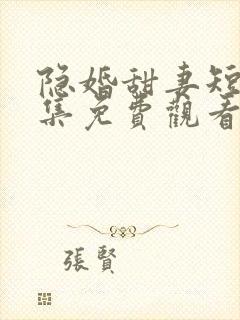 隐婚甜妻短
集免費觀看
張賢